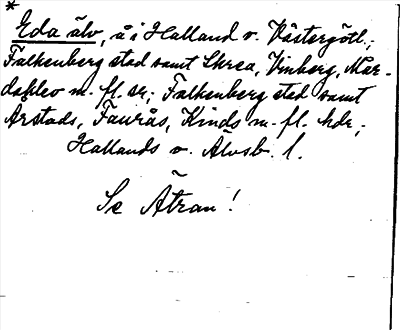 *
Eda älv, å i Halland o. Västergötl.;
Falkenberg stad samt Skrea, Vinberg, Mar-
daklev m. fl. sr; Falkenberg stad samt
Årstads, Faurås, Kinds m. fl. hdr;
Hallands o. Älvsb. l.
Se Ätran!